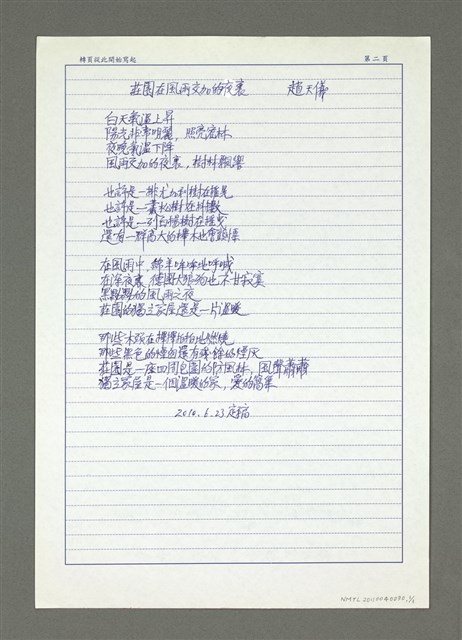 轉頁從此開始寫起
第二頁
莊園在風雨交加的夜裏 趙天儀
白天氣溫上昇
陽光非常明麗，照亮流林
夜晚氣溫下降
風雨交加的夜裏，樹林飄響
也許是一排尤加利樹在搖晃
也許是一叢松樹在抖擻
也許是一列白楊樹在搖曳
還有一群高大的樺木也會顫慄
在風雨中，綿羊咩咩地呼喊
在深夜裏，德國大狼狗也不甘寂寞
黑黝黝的風雨之夜
莊園的獨立家屋還是一片溫暖
那些木頭在嗶嗶拍拍地燃燒
那些黑色的煙囱還有殘餘的煙灰
莊園是一座四周包圍的防風林，風聲蕭蕭
獨立家屋是一個溫暖的家，愛的窩巢
2010.6.23 定稿
NMTL 2011004